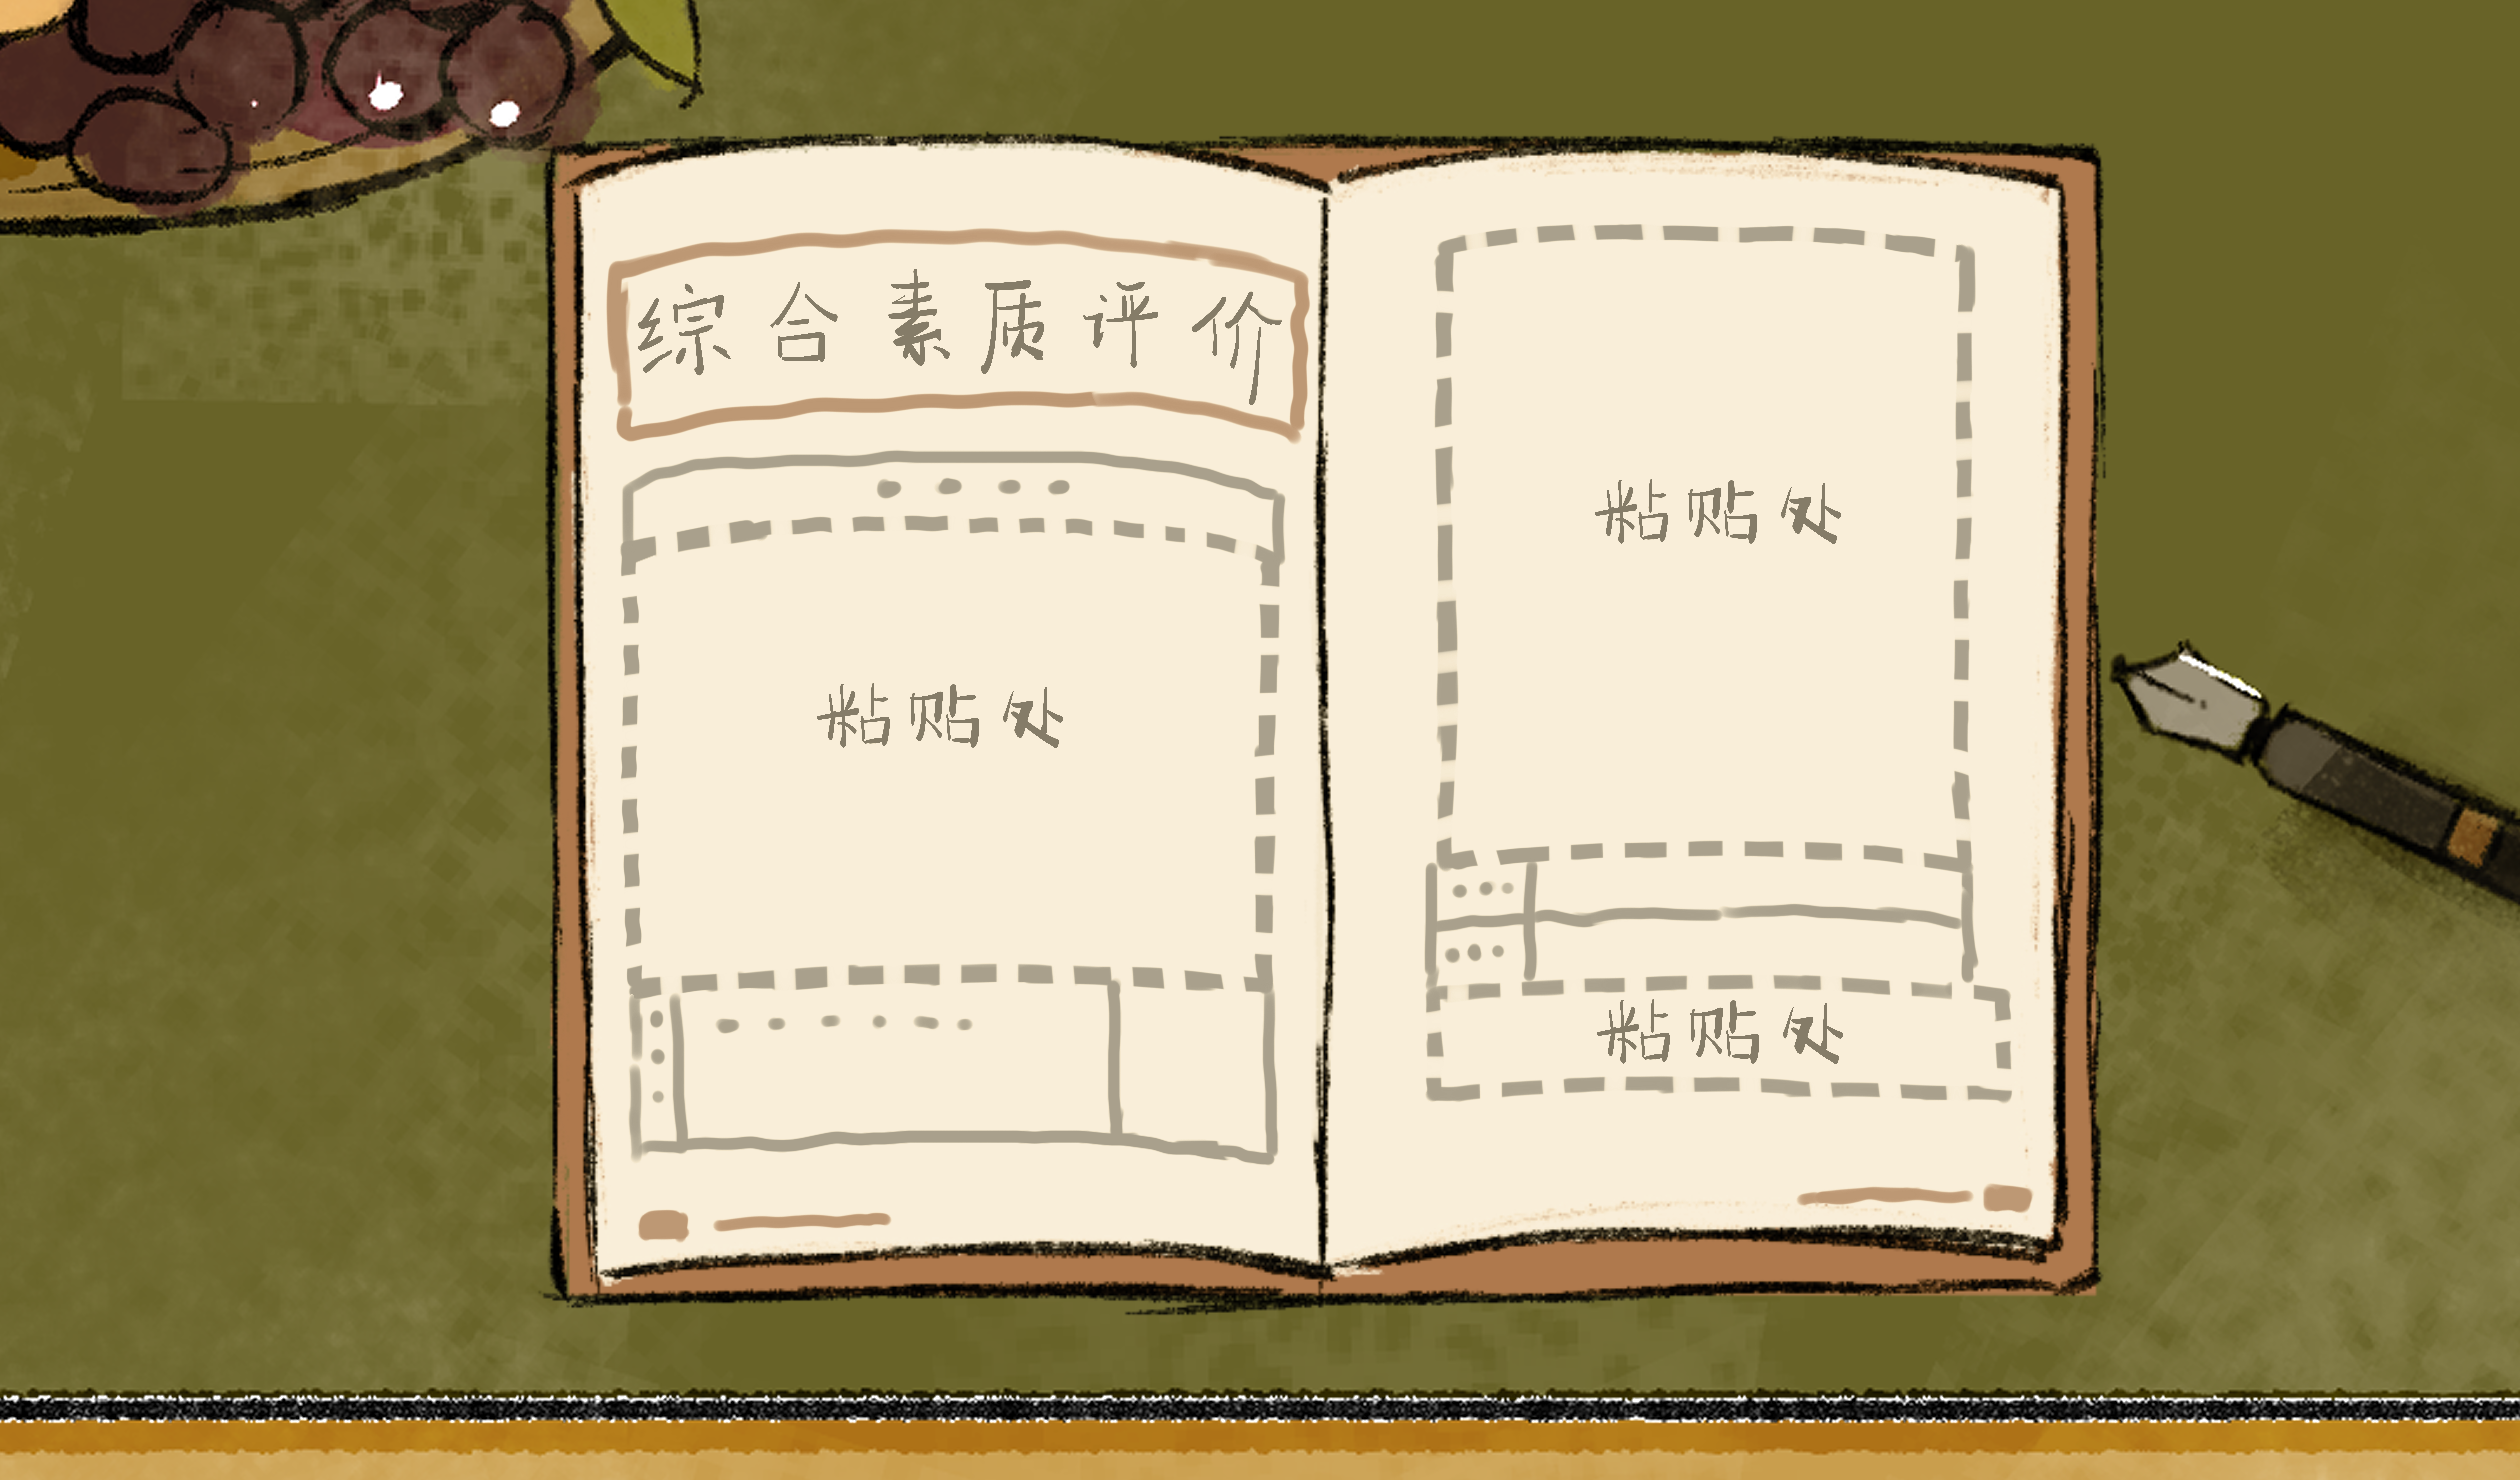 综合素质评价
粘贴处
粘贴处
粘贴处